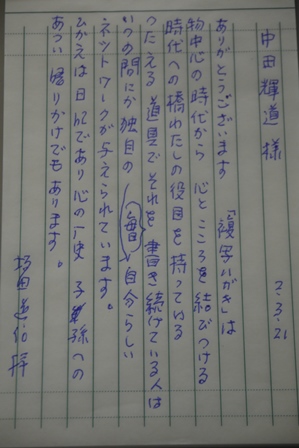 中田輝道 様
2.3.21
ありがとうございます 「複写ハガキ」は
物中心の時代から 心とこころを結びつける
時代への橋わたしの役目を持っている
つたえる 道具でそれを書き続けている人は
いつの間にか独自の (毎) 自分らしい
ネットワークが与えられています。
ひかえは日記であり心の歴史 子孫への
あつい 贈りかけでもあります。
坂田道信 拝